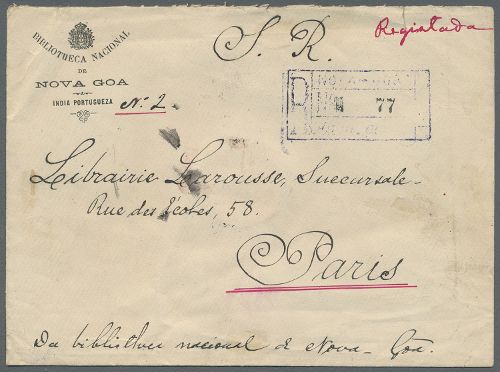 BIBLIOTHECA NACIONAL
DE
NOVA GOA
INDIA PORTUGUEZA
Nº 2
S. R.
Registada
R
NOVA-GOA
77
Librairie Larousse, Succursale-
Rue des Écoles, 58.
Paris
Da bibliothec nacional de Nova-Goa.